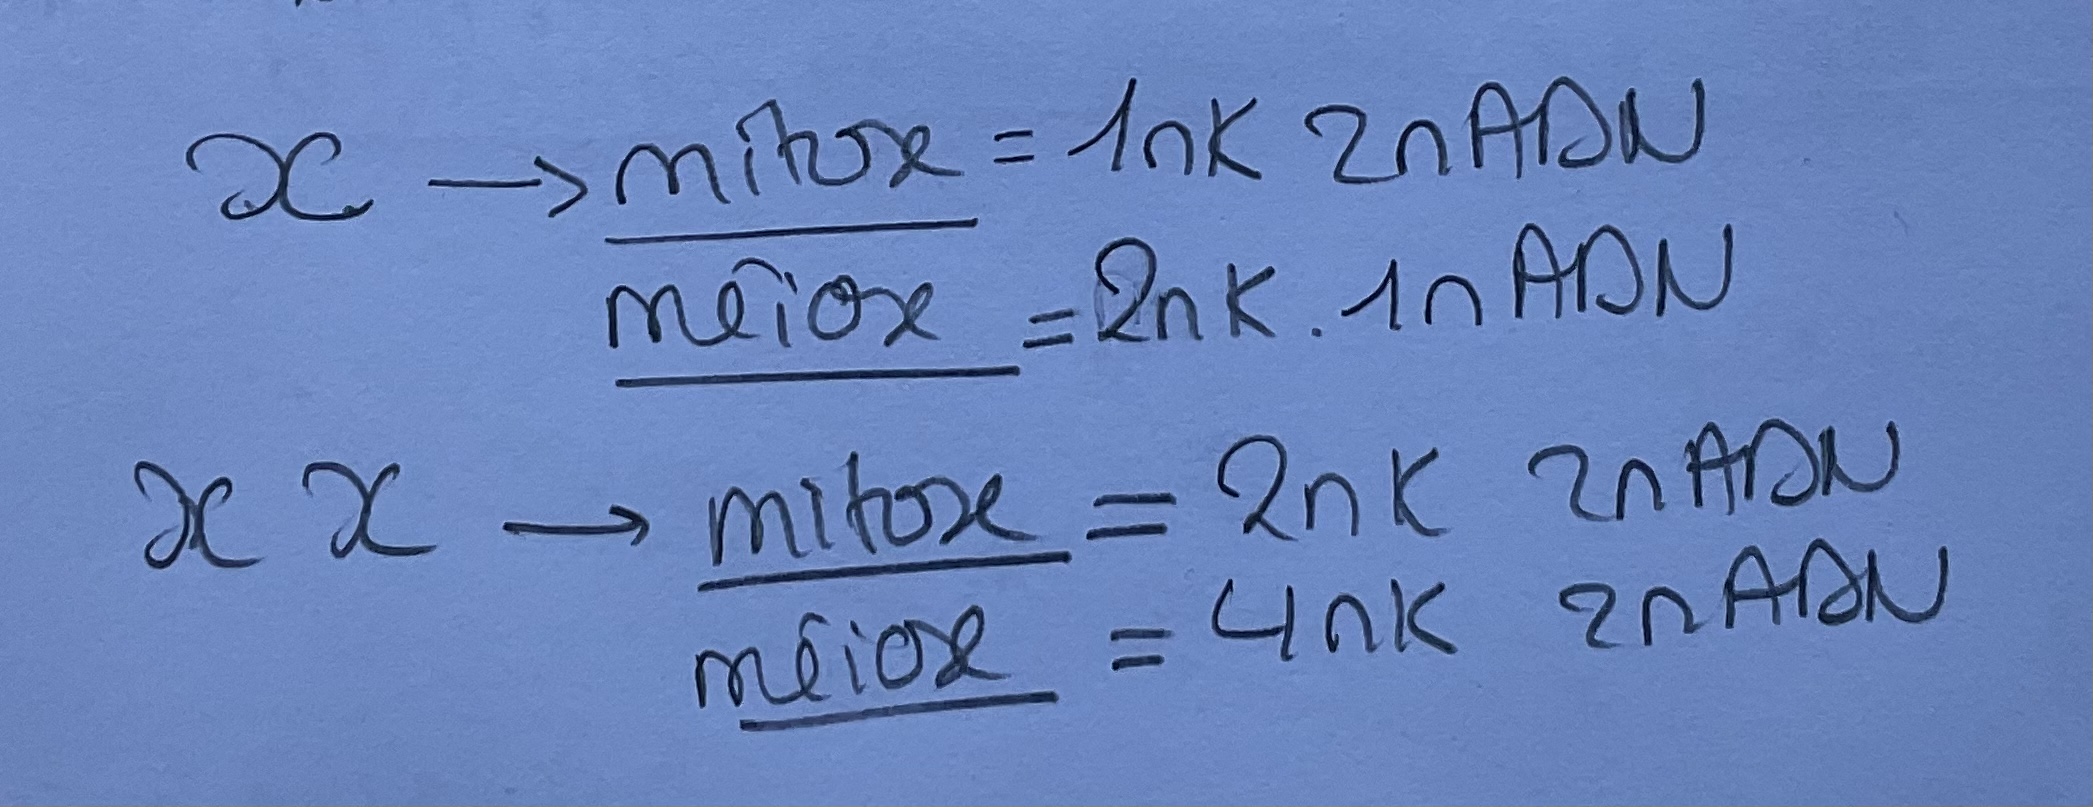 x → mitose = 1nK 2nADN
méiose = 2nK. 1nADN
x x → mitose = 2nK 2nADN
méiose = 4nK 2nADN